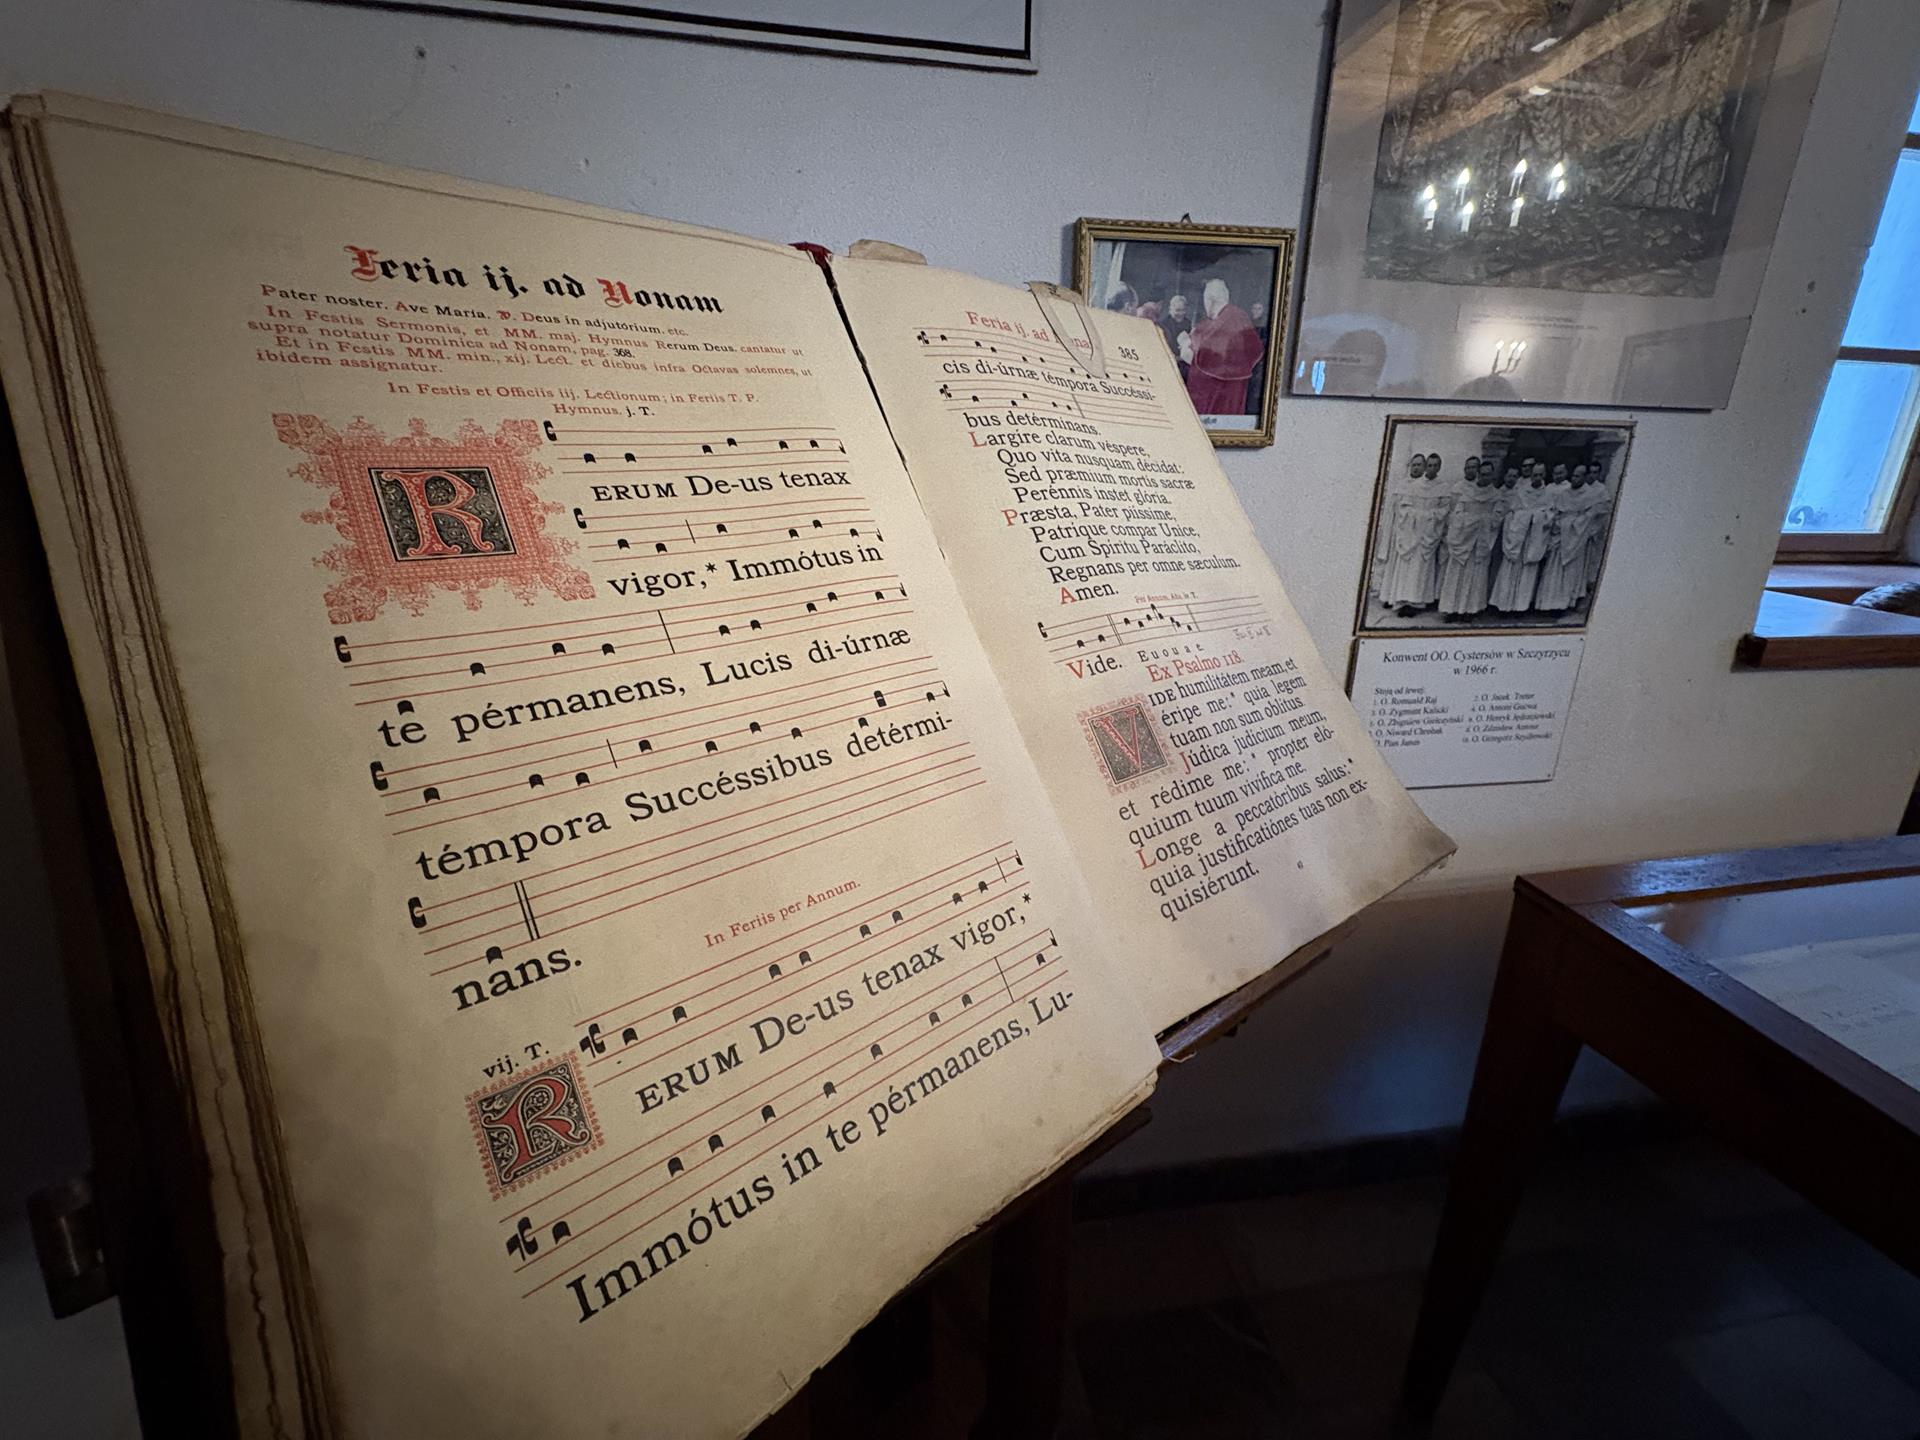 Feria ij. ad Nonam
Pater noster. Ave Maria. ℣. Deus in adjutórium. etc.
In Festis Sermonis, et MM. maj. Hymnus Rerum Deus. cantatur ut
supra notatur Dominica ad Nonam, pag. 368.
Et in Festis MM. min., xij. Lect. et diebus infra Octavas solemnes, ut
ibidem assignatur.
In Festis et Officiis iij. Lectionum; in Feriis T. P.
Hymnus. j. T.
RERUM De-us tenax
vigor,* Immótus in
te pérmanens, Lucis di-úrnæ
témpora Succéssibus detérmi-
nans.
In Feriis per Annum.
vij. T.
RERUM De-us tenax vigor,*
Immótus in te pérmanens, Lu-
Feria ij. ad Nonam
385
cis di-úrnæ témpora Succéssi-
bus detérminans.
Largíre clarum véspere,
Quo vita nusquam décidat:
Sed præmium mortis sacræ
Perénnis instet glória.
Præsta, Pater piíssime,
Patrique compar Unice,
Cum Spíritu Paráclito,
Regnans per omne sæculum.
Amen.
Per Annum. Aña. in T.
Vide. Euouae
Ex Psalmo 118.
VIDE humilitátem meam, et
éripe me:* quia legem
tuam non sum oblítus.
Júdica judícium meum,
et rédime me:* propter eló-
quium tuum vivífica me.
Longe a peccatóribus salus:*
quia justificatiónes tuas non ex-
quisiérunt.
Konwent OO. Cystersów w Szczyrzycu
w 1966 r.
Stoją od lewej:
1. O. Romuald Raj 2. O. Jacek
3. O. Zygmunt 4. O. Antoni
O. Zbigniew 6. O. Henryk
O. Niward Chrobak 8. O. Zdzisław
O. Pius Janas 10. O. Grzegorz